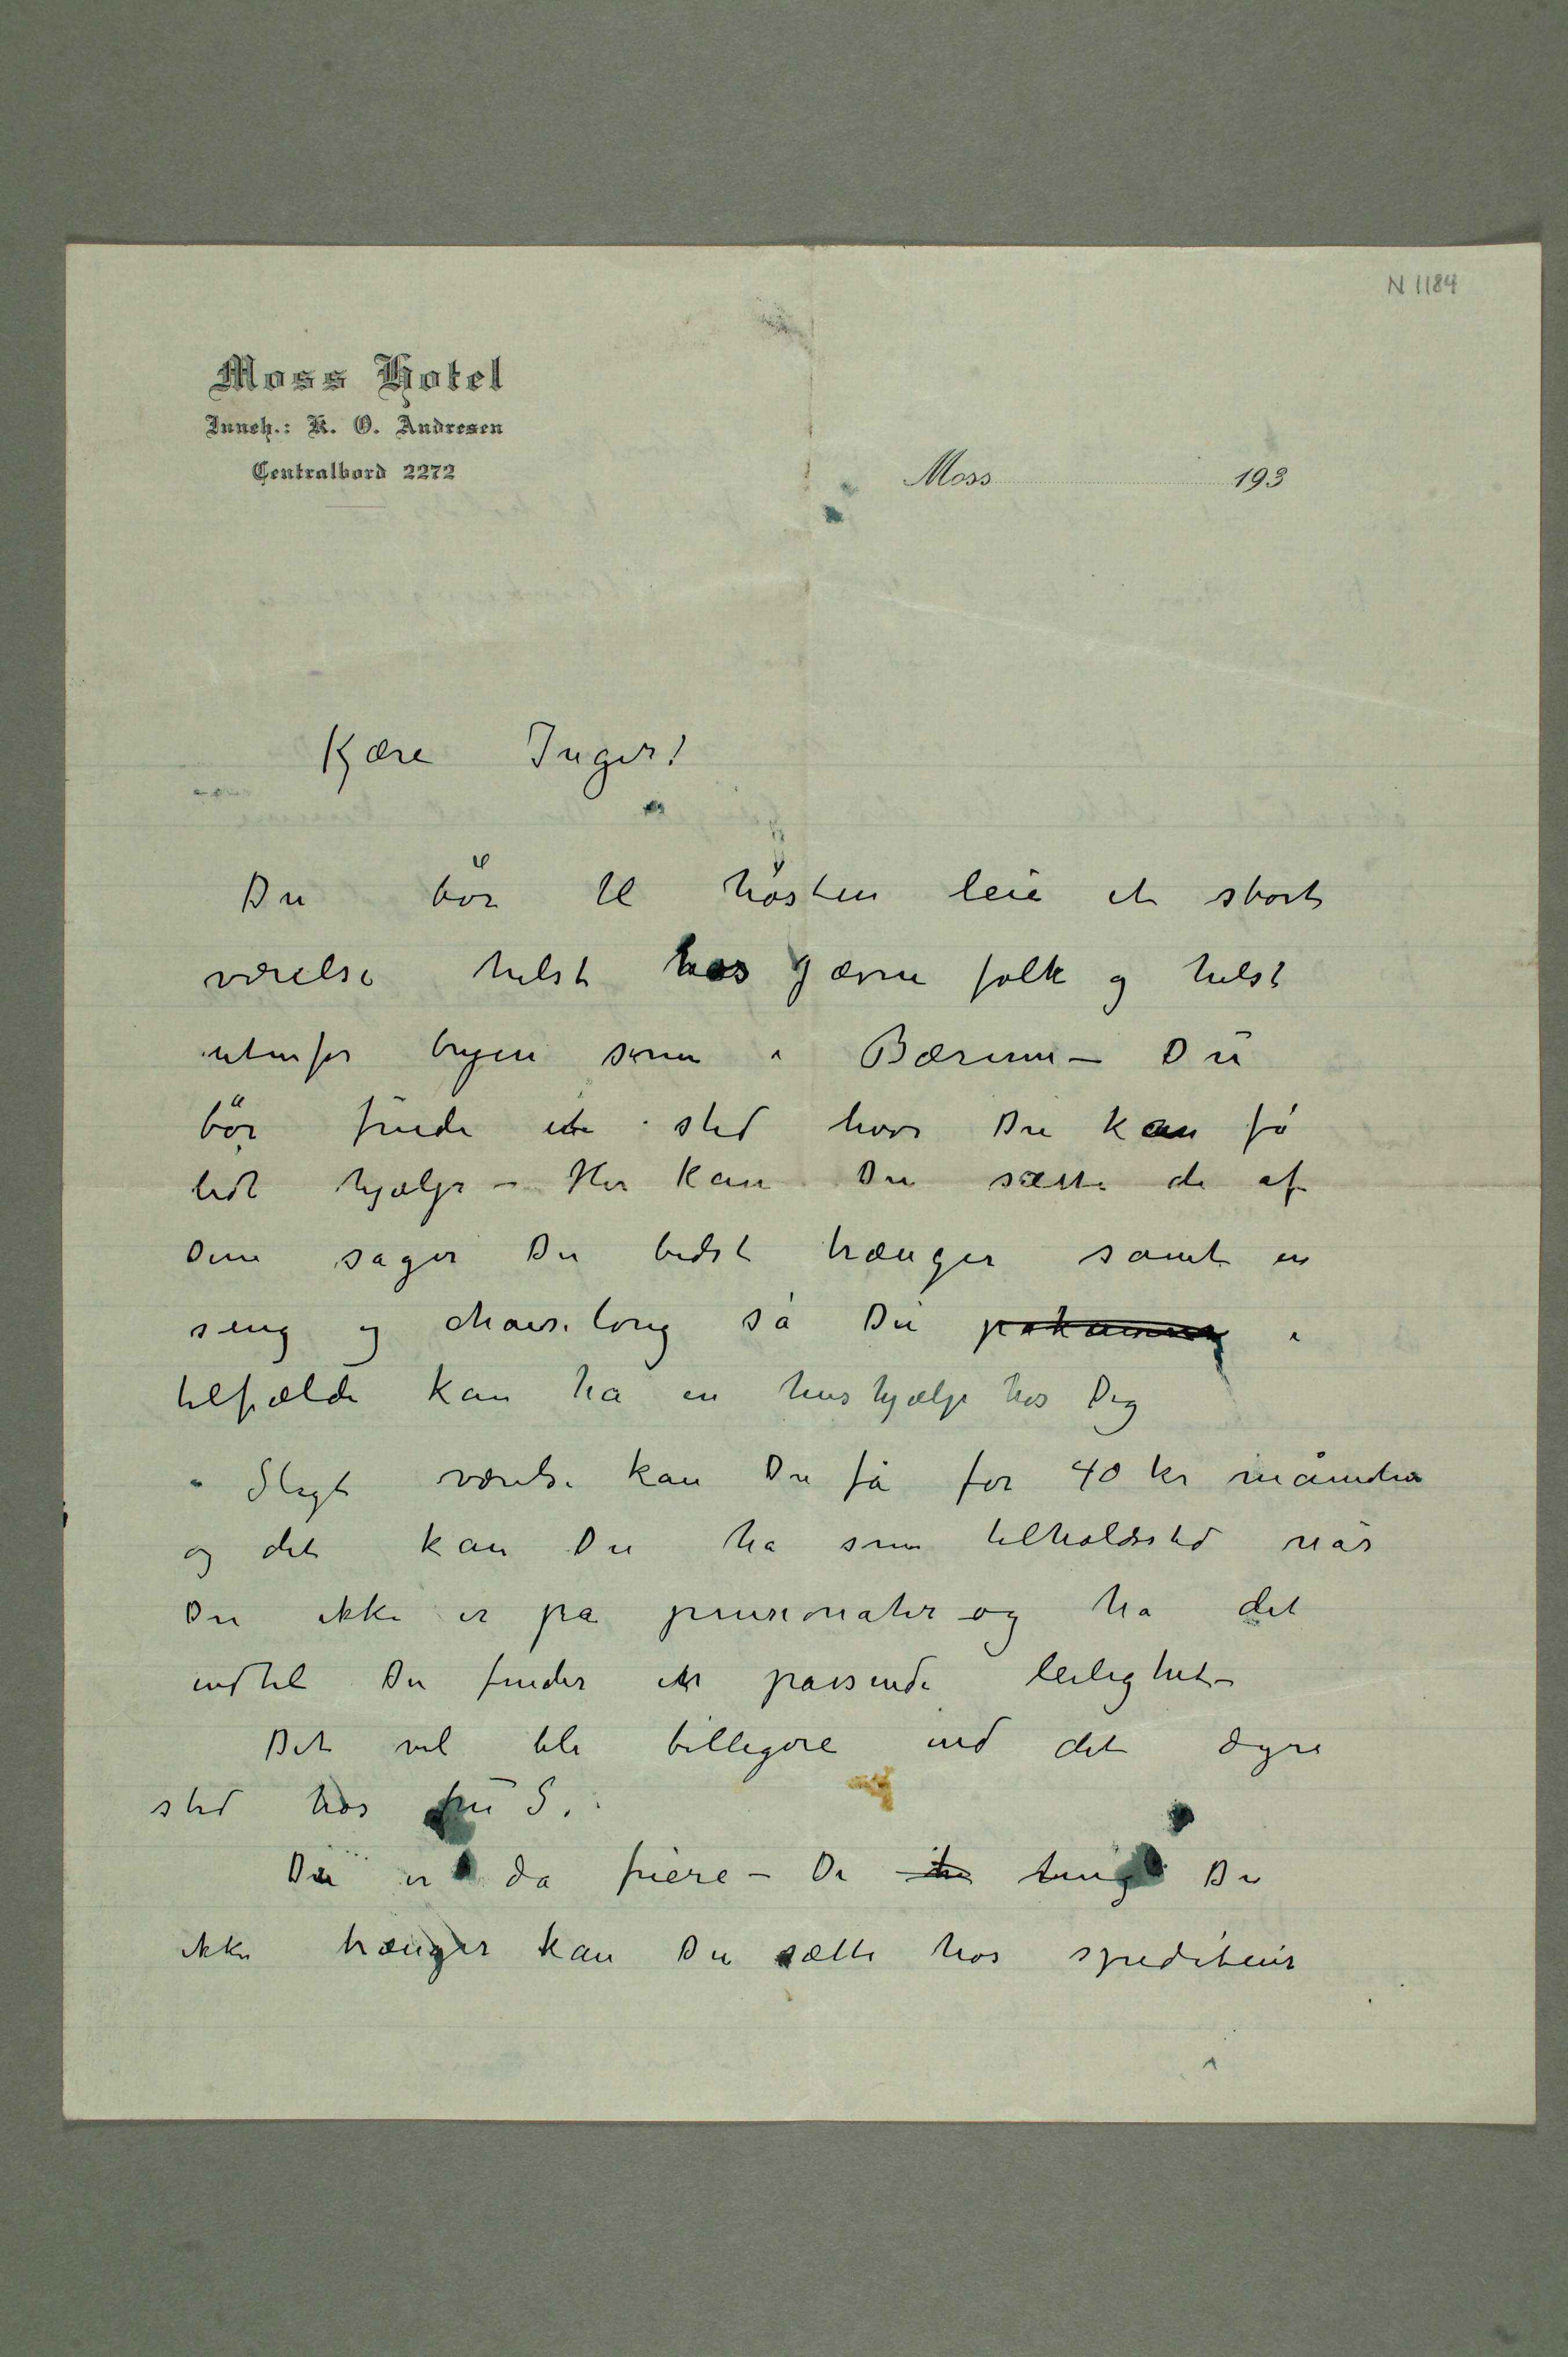 N 1184
Moss Hotel
Inneh.: K. O. Andresen
Centralbord 2272
Moss 193
Kjære Inger!
Du bör til hösten leie et stort
værelse helst hos gjævne folk og helst
utenfor byen som i Bærum – Du
bör finde et sted hvor Du kan få
lidt hjælp – Her kan Du sætte de af
Dine sager Du bedst trænger samt en
seng og chaiselong så Du i
tilfælde kan ha en hushjælp hos Dig
Sligt værelse kan Du få for 40 kr måneden
og det kan Du ha som tilholdssted når
Du ikke er på pensionater og ha det
indtil Du finder en passende leilighet –
Det vil bli billigere end det dyre
sted hos fru S.
Du er da friere – De ting Du
ikke trænger kan Du sætte hos spediteur